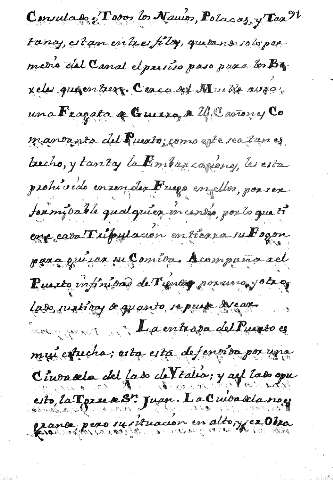 91
Consulado; Todos los Navios, Polacras, y Tar
tanas, estan entre filas, quedando solo por
medio del Canal el preciso paso para los Ba
xeles que entren. Cerca del Muelle avia
una Fragata de Guerra, de Cañones, Co
mandanta del Puerto; como este sea tan es
trecho, y tantas las Embarcaciones, les esta
prohivido encender Fuego en ellas, por ser
formidable qualquier incendio, por lo que ti
ene cada Tripulación en tierra su Fogon
para guisar su Comida. Acompaña a el
Puerto infinidad de Tiendas por uno, y otro
lado, surtidas de quanto se puede desear.
La entrada del Puerto es
mui estrecha; esta está defendida por una
Ciudadela del lado de Ytalia; y del lado opu
esto, la Torre de Sn. Juan. La Ciudadela no es
grande pero su situación en alto, y ser Obra